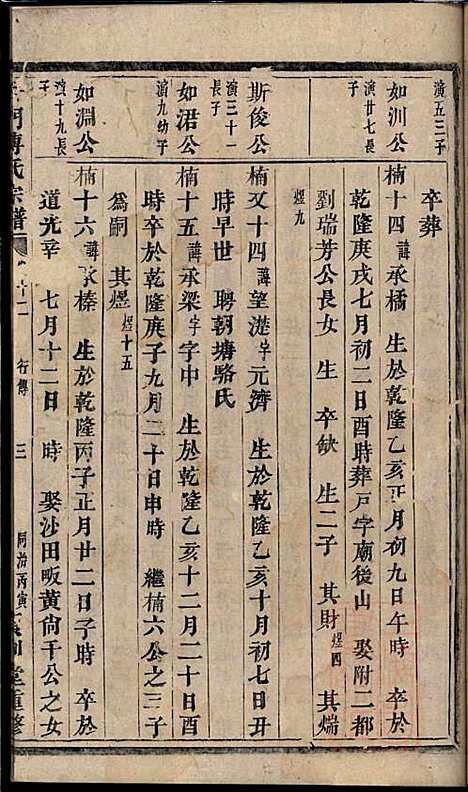 演五三子
卒葬
如汌公
演廿七長
子
楠十四諱承橘 生於乾隆乙亥正月初九日午時 卒於
乾隆庚戌七月初二日酉時葬戸字廟後山 娶附二都
劉瑞芳公長女 生 卒缺 生二子 其財煜四 其煓
煜九
斯俊公
演三十一
長子
楠又十四諱望漇字元濟 生於乾隆乙亥十月初七日丑
時早世 聘朝塘駱氏
如涒公
演九幼子
楠十五諱承梁字字中 生於乾隆乙亥十二月二十日酉
時卒於乾隆庚子九月二十日申時 繼楠六公之三子
爲嗣 其煜煜十五
如淵公
演十九長
子
楠十六諱承榛 生於乾隆丙子正月廿二日子時 卒於
道光辛 七月十二日 時 娶沙田畈黃尙干公之女
傅氏宗譜
行傳
三
同治丙寅
堂重修